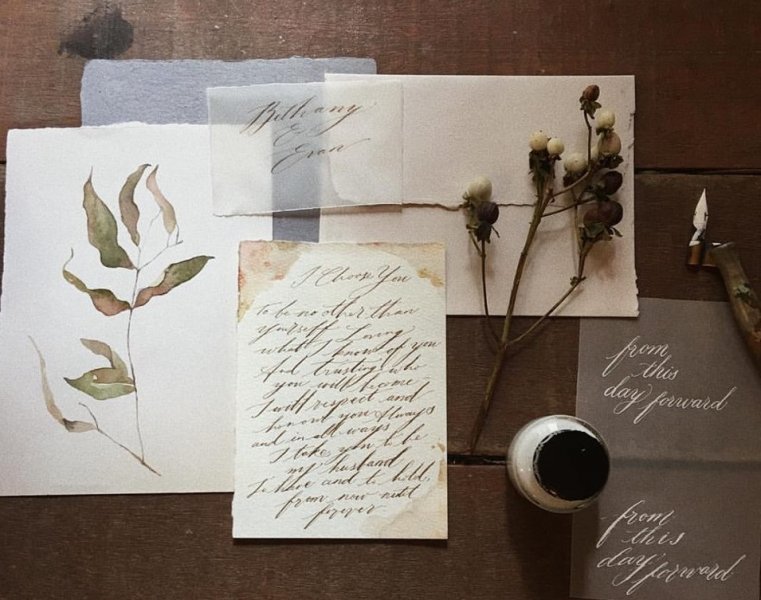 Bethany
&
Evan
I Choose You
To be no other than
yourself Loving
what I know of you
And trusting who
you will become
I will respect and
honor you Always
and in all ways
I take you to be
my husband
To have and to hold,
from now until
forever
from
this
day forward
from
this
day forward